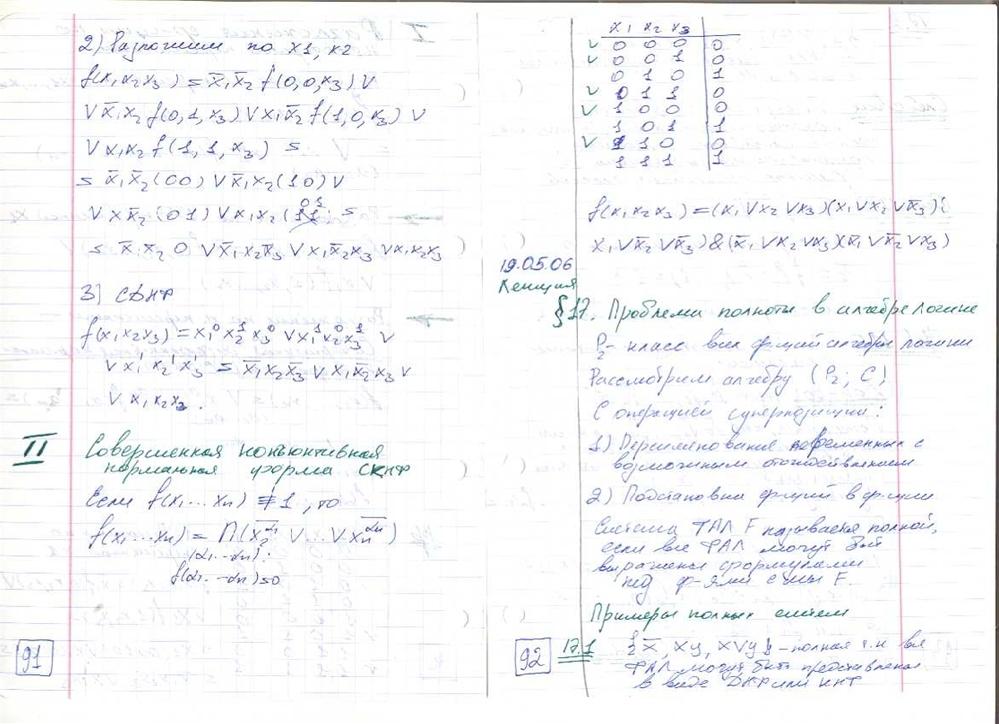 2) Разложим по x1, x2
f(x₁x₂x₃) = x̄₁x̄₂ f(0,0,x₃) V
V x̄₁x₂ f(0,1,x₃) V x₁x̄₂ f(1,0,x₃) V
V x₁x₂ f(1,1,x₃) =
= x̄₁x̄₂(00) V x̄₁x₂(10) V
V x x̄₂(01) V x₁x₂(01) =
= x̄₁x̄₂ 0 V x̄₁x₂x̄₃ V x₁x̄₂x₃ V x₁x₂x₃
3) СДНФ
f(x₁x₂x₃) = x₁⁰x₂¹x₃⁰ V x₁¹x₂⁰x₃¹ V
V x₁¹x₂¹x₃¹ = x̄₁x₂x̄₃ V x₁x̄₂x₃ V
V x₁x₂x₃.
II Совершенная конъюнктивная
нормальная форма СКНФ
Если f(x₁...xₙ) ≢ 1, то
f(x₁...xₙ) = Π(x₁^ᾱ₁ V ... V xₙ^ᾱₙ)
(α₁...αₙ):
f(α₁...αₙ)=0
91
x₁ x₂ x₃
V 0 0 0 0
V 0 0 1 0
0 1 0 1
V 0 1 1 0
V 1 0 0 0
1 0 1 1
V 1 1 0 0
1 1 1 1
f(x₁x₂x₃) = (x₁ V x₂ V x₃)(x₁ V x₂ V x̄₃)(
x₁ V x̄₂ V x̄₃) & (x̄₁ V x₂ V x₃)(x̄₁ V x̄₂ V x₃)
19.05.06
Лекция
§17. Проблема полноты в алгебре логики
P₂ - класс всех функций алгебры логики
Рассмотрим алгебру (P₂; C)
С операцией суперпозиции:
1) Переименования переменных с
возможным отождествлением
2) Подстановки функций в функции
Система ФАЛ F называется полной,
если все ФАЛ могут быть
выражены формулами
над ф-ями с-мы F.
Примеры полных систем
92
17.1 {x̄, xy, xVy} - полная т.к. все
ФАЛ могут быть представлены
в виде ДНФ или КНФ